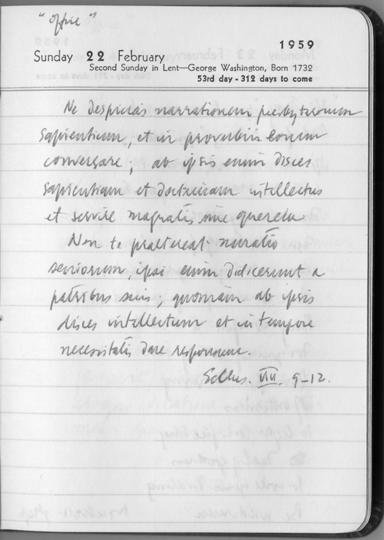 "Office"
1959
Sunday 22 February
Second Sunday in Lent—George Washington, Born 1732
53rd day - 312 days to come
Ne despicias narrationem presbyterorum
sapientium, et in proverbiis eorum
conversare; ab ipsis enim disces
sapientiam et doctrinam intellectus
et servire magnatis sine querela
Non te praetereat narratio
seniorum, ipsi enim didicerunt a
patribus suis; quoniam ab ipsis
disces intellectum et in tempore
necessitatis dare responsum.
Eccles. VIII 9-12.